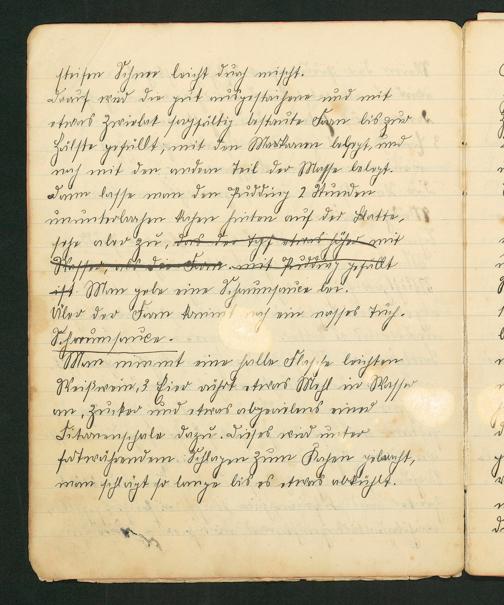 steifen Schnee leicht durch mischt.
Darauf wird die gut ausgestrichene und mit
etwas Zwiebat sorgfältig bestreute Form bis zur
Hälfte gefüllt, mit den Makronen belegt, und
noch mit dem andern Teil der Masse belegt.
Dann lasse man den Pudding 2 Stunden
ununterbrochen kochen hinten auf der Platte,
sehe aber zu, das der Topf etwas höher mit
Wasser, als die Form mit Pudding gefüllt
ist. Man gebe eine Schaumsauce bei.
Über der Form kommt noch ein nasses Tuch.
Schaumsauce.
Man nimmt eine halbe Flasche leichten
Weißwein, 3 Eier rührt etwas Mehl in Wasser
an, Zucker und etwas abgeriebens einer
Zitronenschale dazu. Dieses wird unter
fortwährendem Schlagen zum Kochen gebracht,
man schlägt so lange bis es etwas abkühlt.